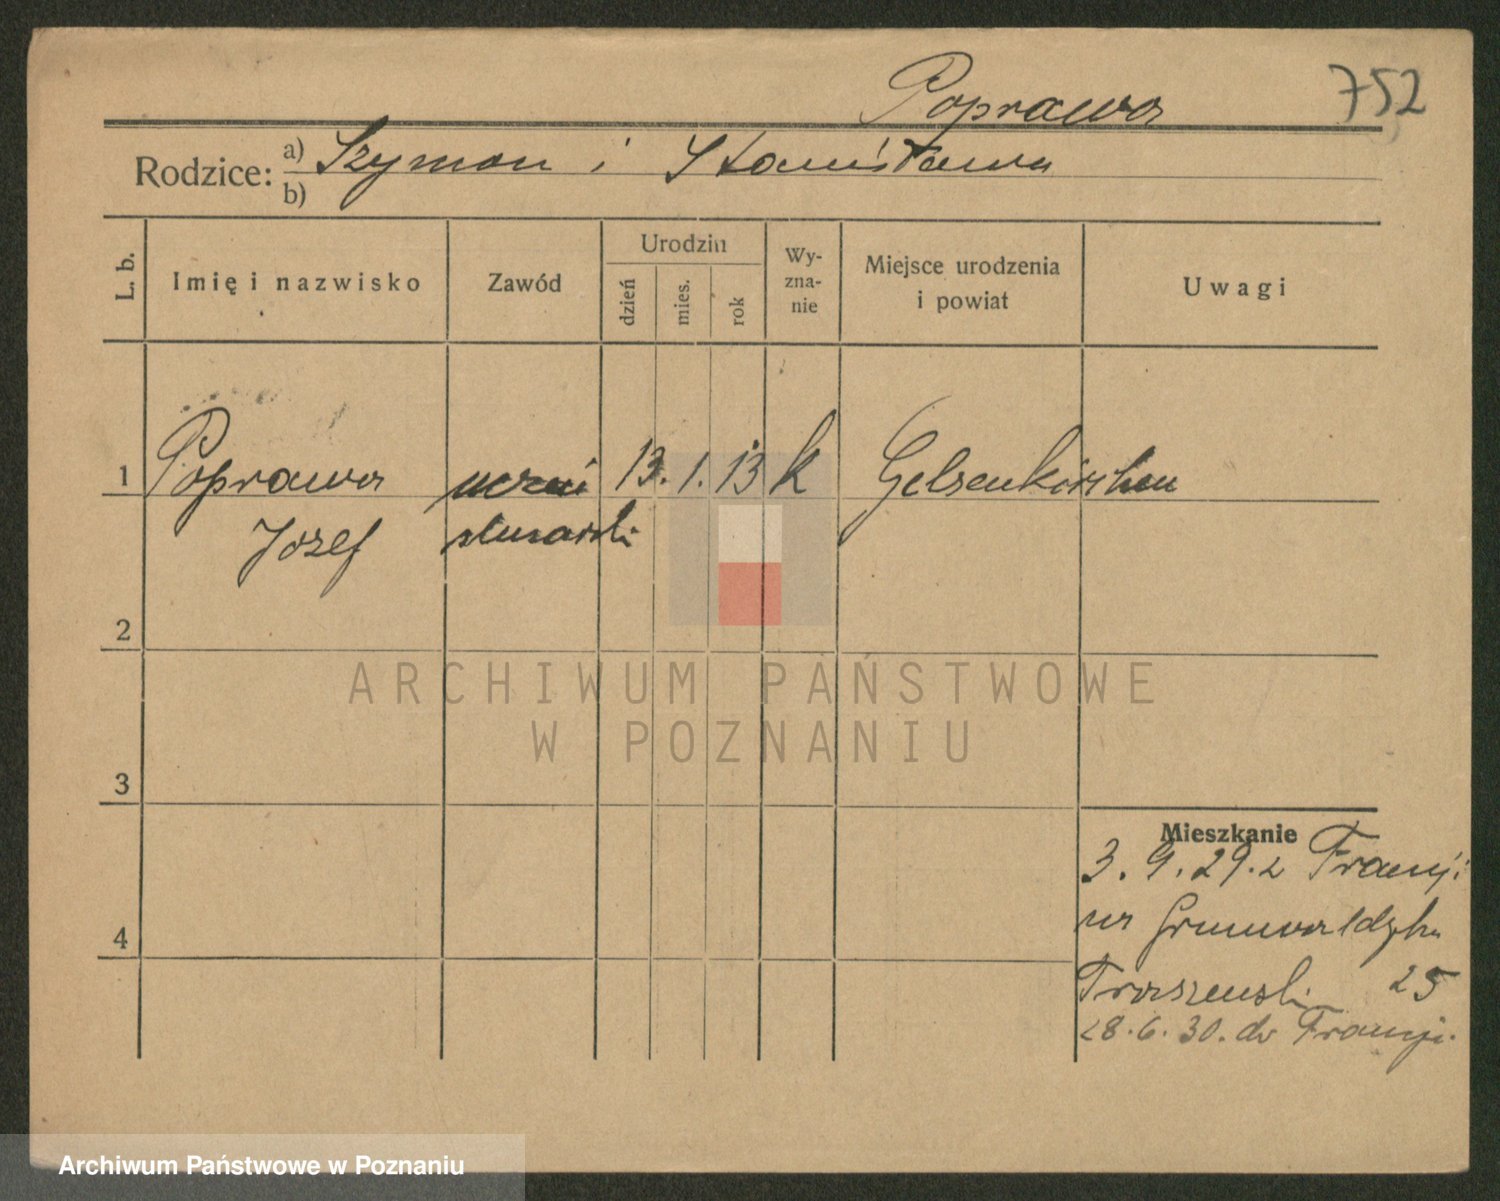 Poprawa 752
Rodzice: a) Szymon i Stanisława
b)
L. b. Imię i nazwisko Zawód Urodzin dzień mies. rok Wy-zna-nie Miejsce urodzenia i powiat Uwagi
1 Poprawa uczeń 13. 1. 13 k Gelsenkirchen
Jozef ślusarski
2
ARCHIWUM PAŃSTWOWE
W POZNANIU
3
Mieszkanie
3. 9. 29. z Francji
na Grunwaldzką
4
25
28. 6. 30. do Francji.
Archiwum Państwowe w Poznaniu